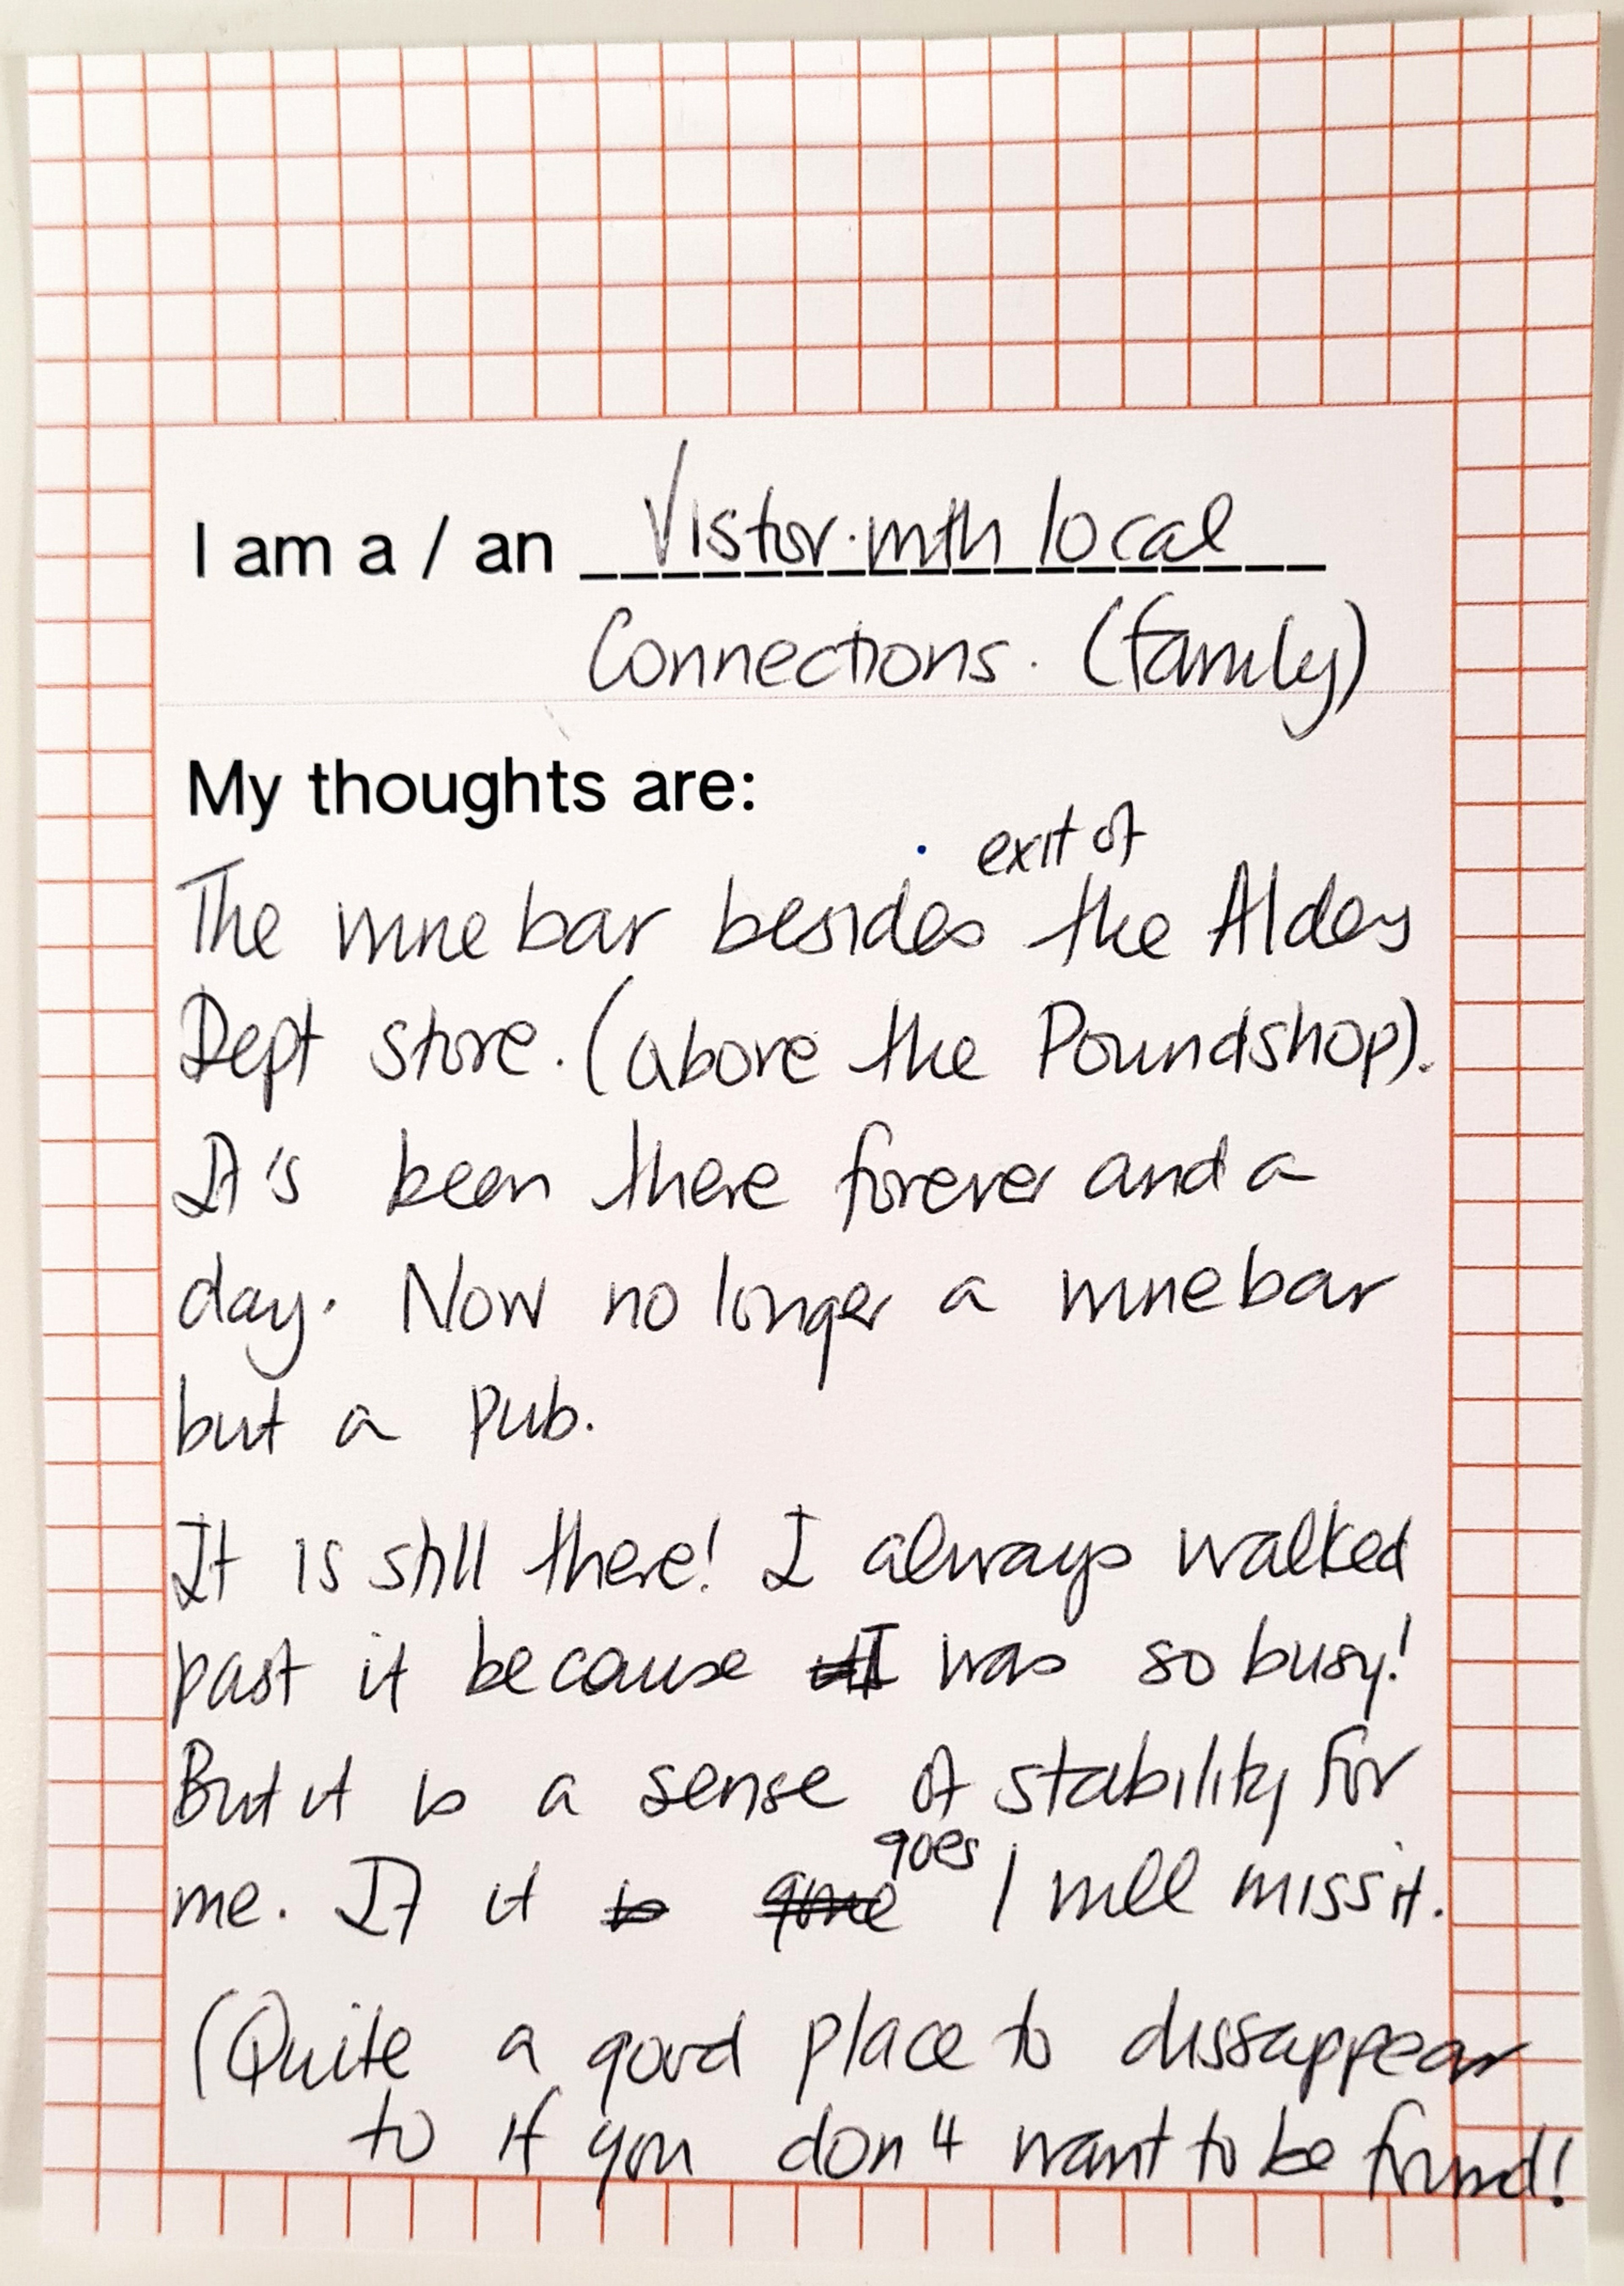 I am a / an Vistor. with local
Connections. (family)
My thoughts are:
exit of
The wine bar besides the Alders
Dept store. (above the Poundshop).
It's been there forever and a
day. Now no longer a wine bar
but a pub.
It is still there! I always walked
past it because I was so busy!
But it is a sense of stability for
goes
me. If it is gone I will miss it.
(Quite a good place to dissappear
to if you don't want to be found!